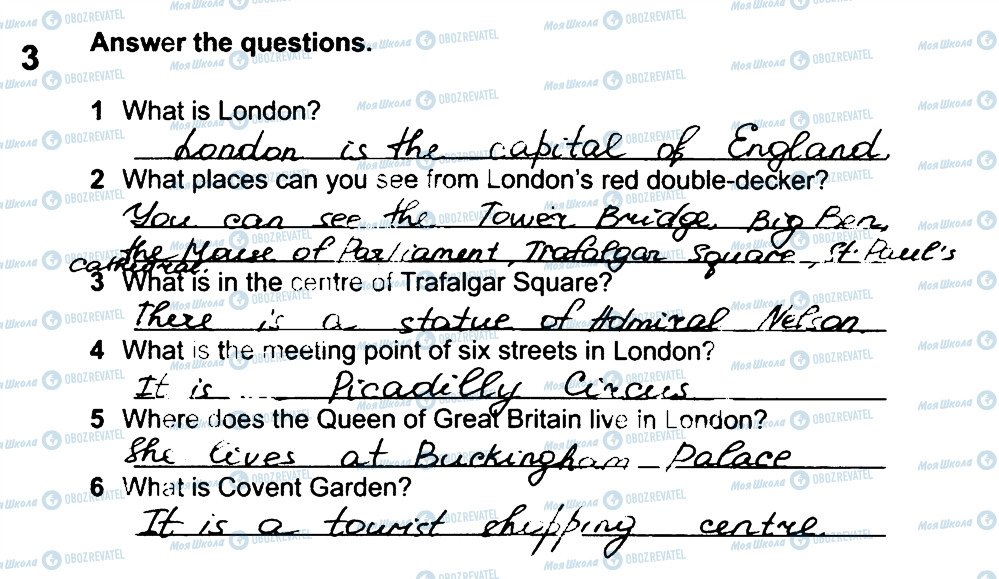 3 Answer the questions.
1 What is London?
London is the capital of England.
2 What places can you see from London's red double-decker?
You can see the Tower Bridge, Big Ben,
the House of Parliament, Trafalgar Square, St. Paul's
cathedral.
3 What is in the centre of Trafalgar Square?
There is a statue of Admiral Nelson
4 What is the meeting point of six streets in London?
It is Picadilly Circus
5 Where does the Queen of Great Britain live in London?
She lives at Buckingham Palace
6 What is Covent Garden?
It is a tourist shopping centre.
Моя Школа OBOZREVATEL